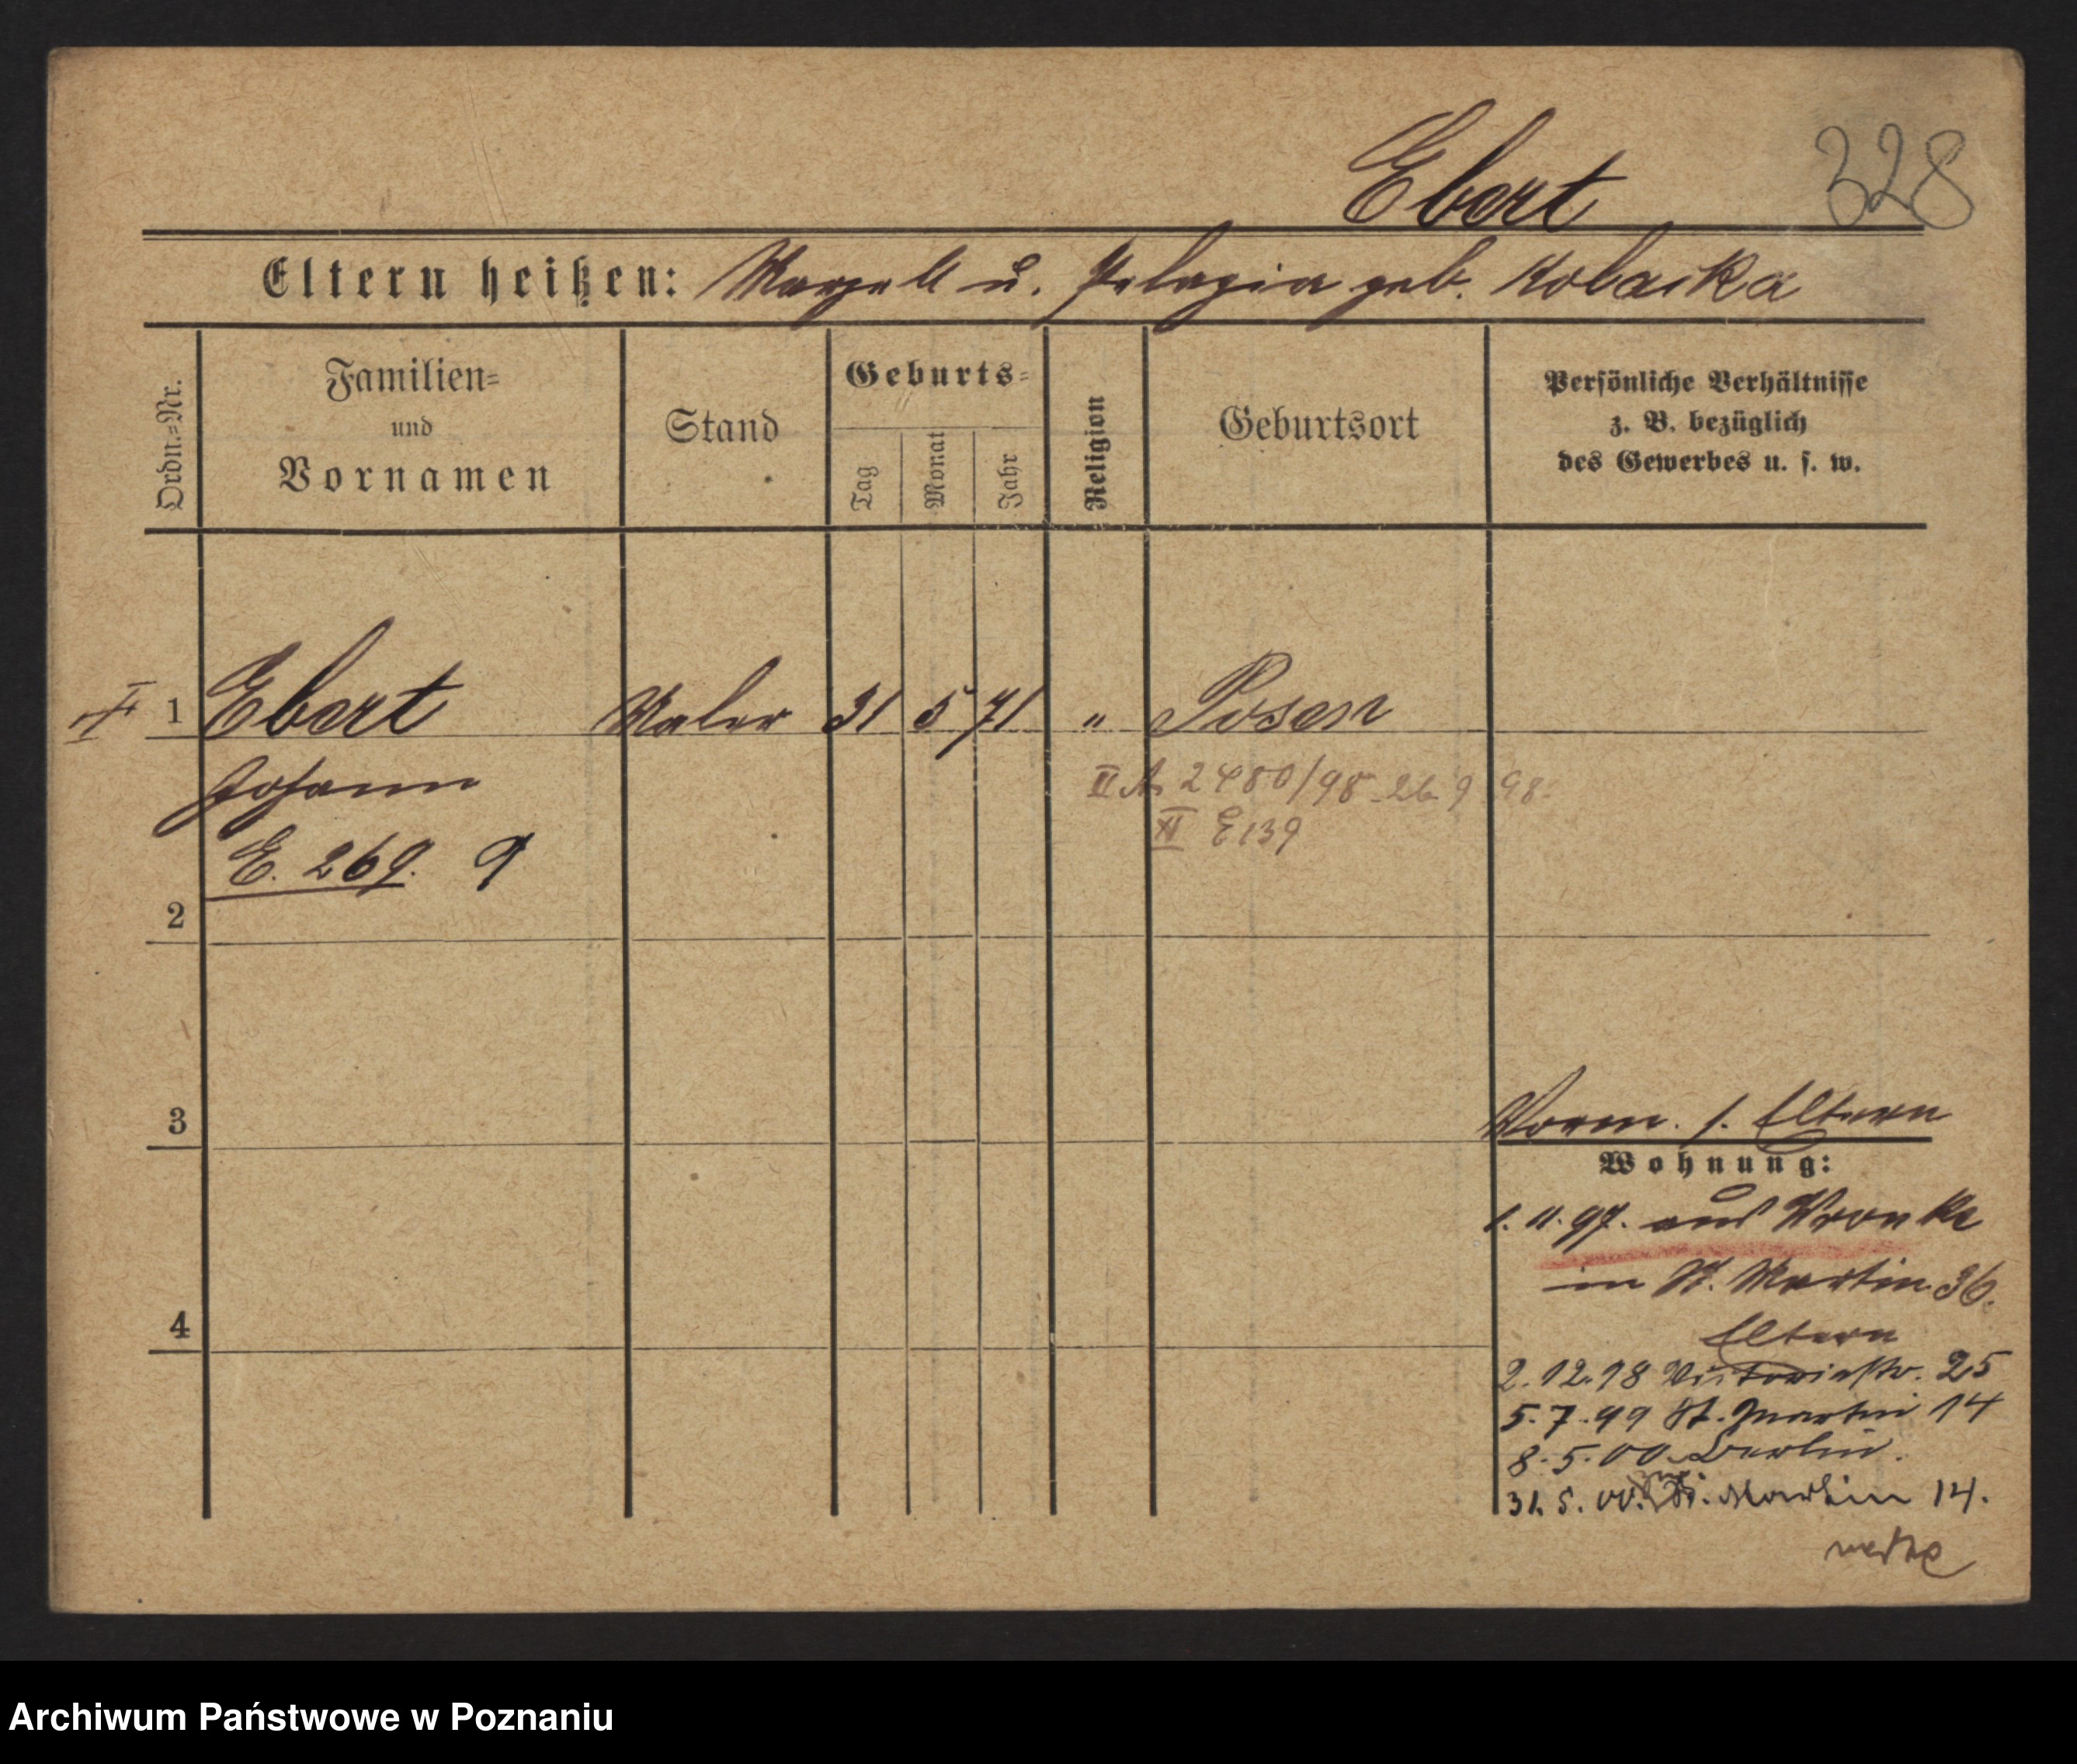 Ebert 328
Eltern heißen: Marzell u. Pelagia geb. Kobacka
Ordn.=Nr.
Familien=
und
Vornamen
Stand
Geburts=
Tag
Monat
Jahr
Religion
Geburtsort
Persönliche Verhältnisse
z. B. bezüglich
des Gewerbes u. s. w.
1 Ebert Maler 31 5 71 " Posen
Johann
II A. 2480/98 26 9 98.
XI E 139
E. 269.
2
3
Vorm. s. Eltern
Wohnung:
1. 11. 97. aus Wronke
in St. Martin 36.
4
Eltern
2. 12. 98 Victoriastr. 25
5. 7. 99 St. Martin 14
8. 5. 00. Berlin.
31. 5. 00. St. Martin 14.
Archiwum Państwowe w Poznaniu